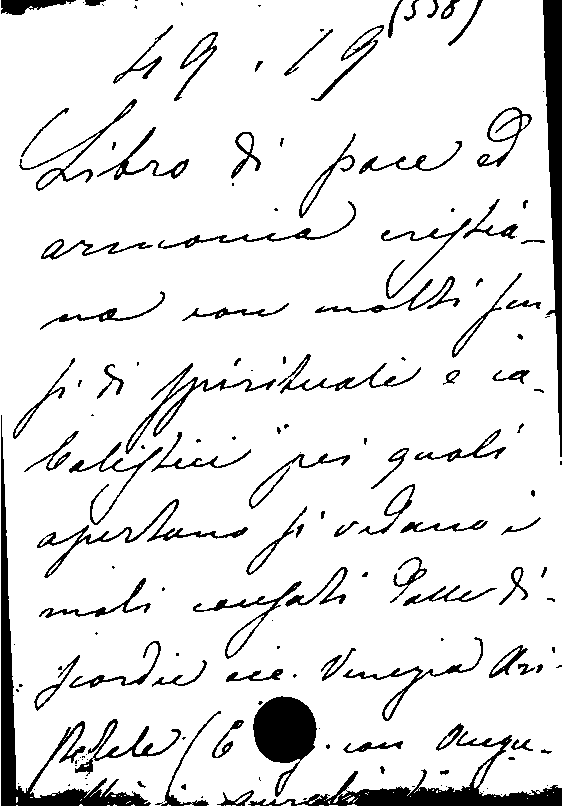 (338)
49.19
Libro di pace ed
armonia cristia-
na con molti sen-
si di spirituali e ca-
balistici pei quali
apertano si vedano i
mali causati dalle di-
scordie ecc. Venezia Ari-
con Angu-